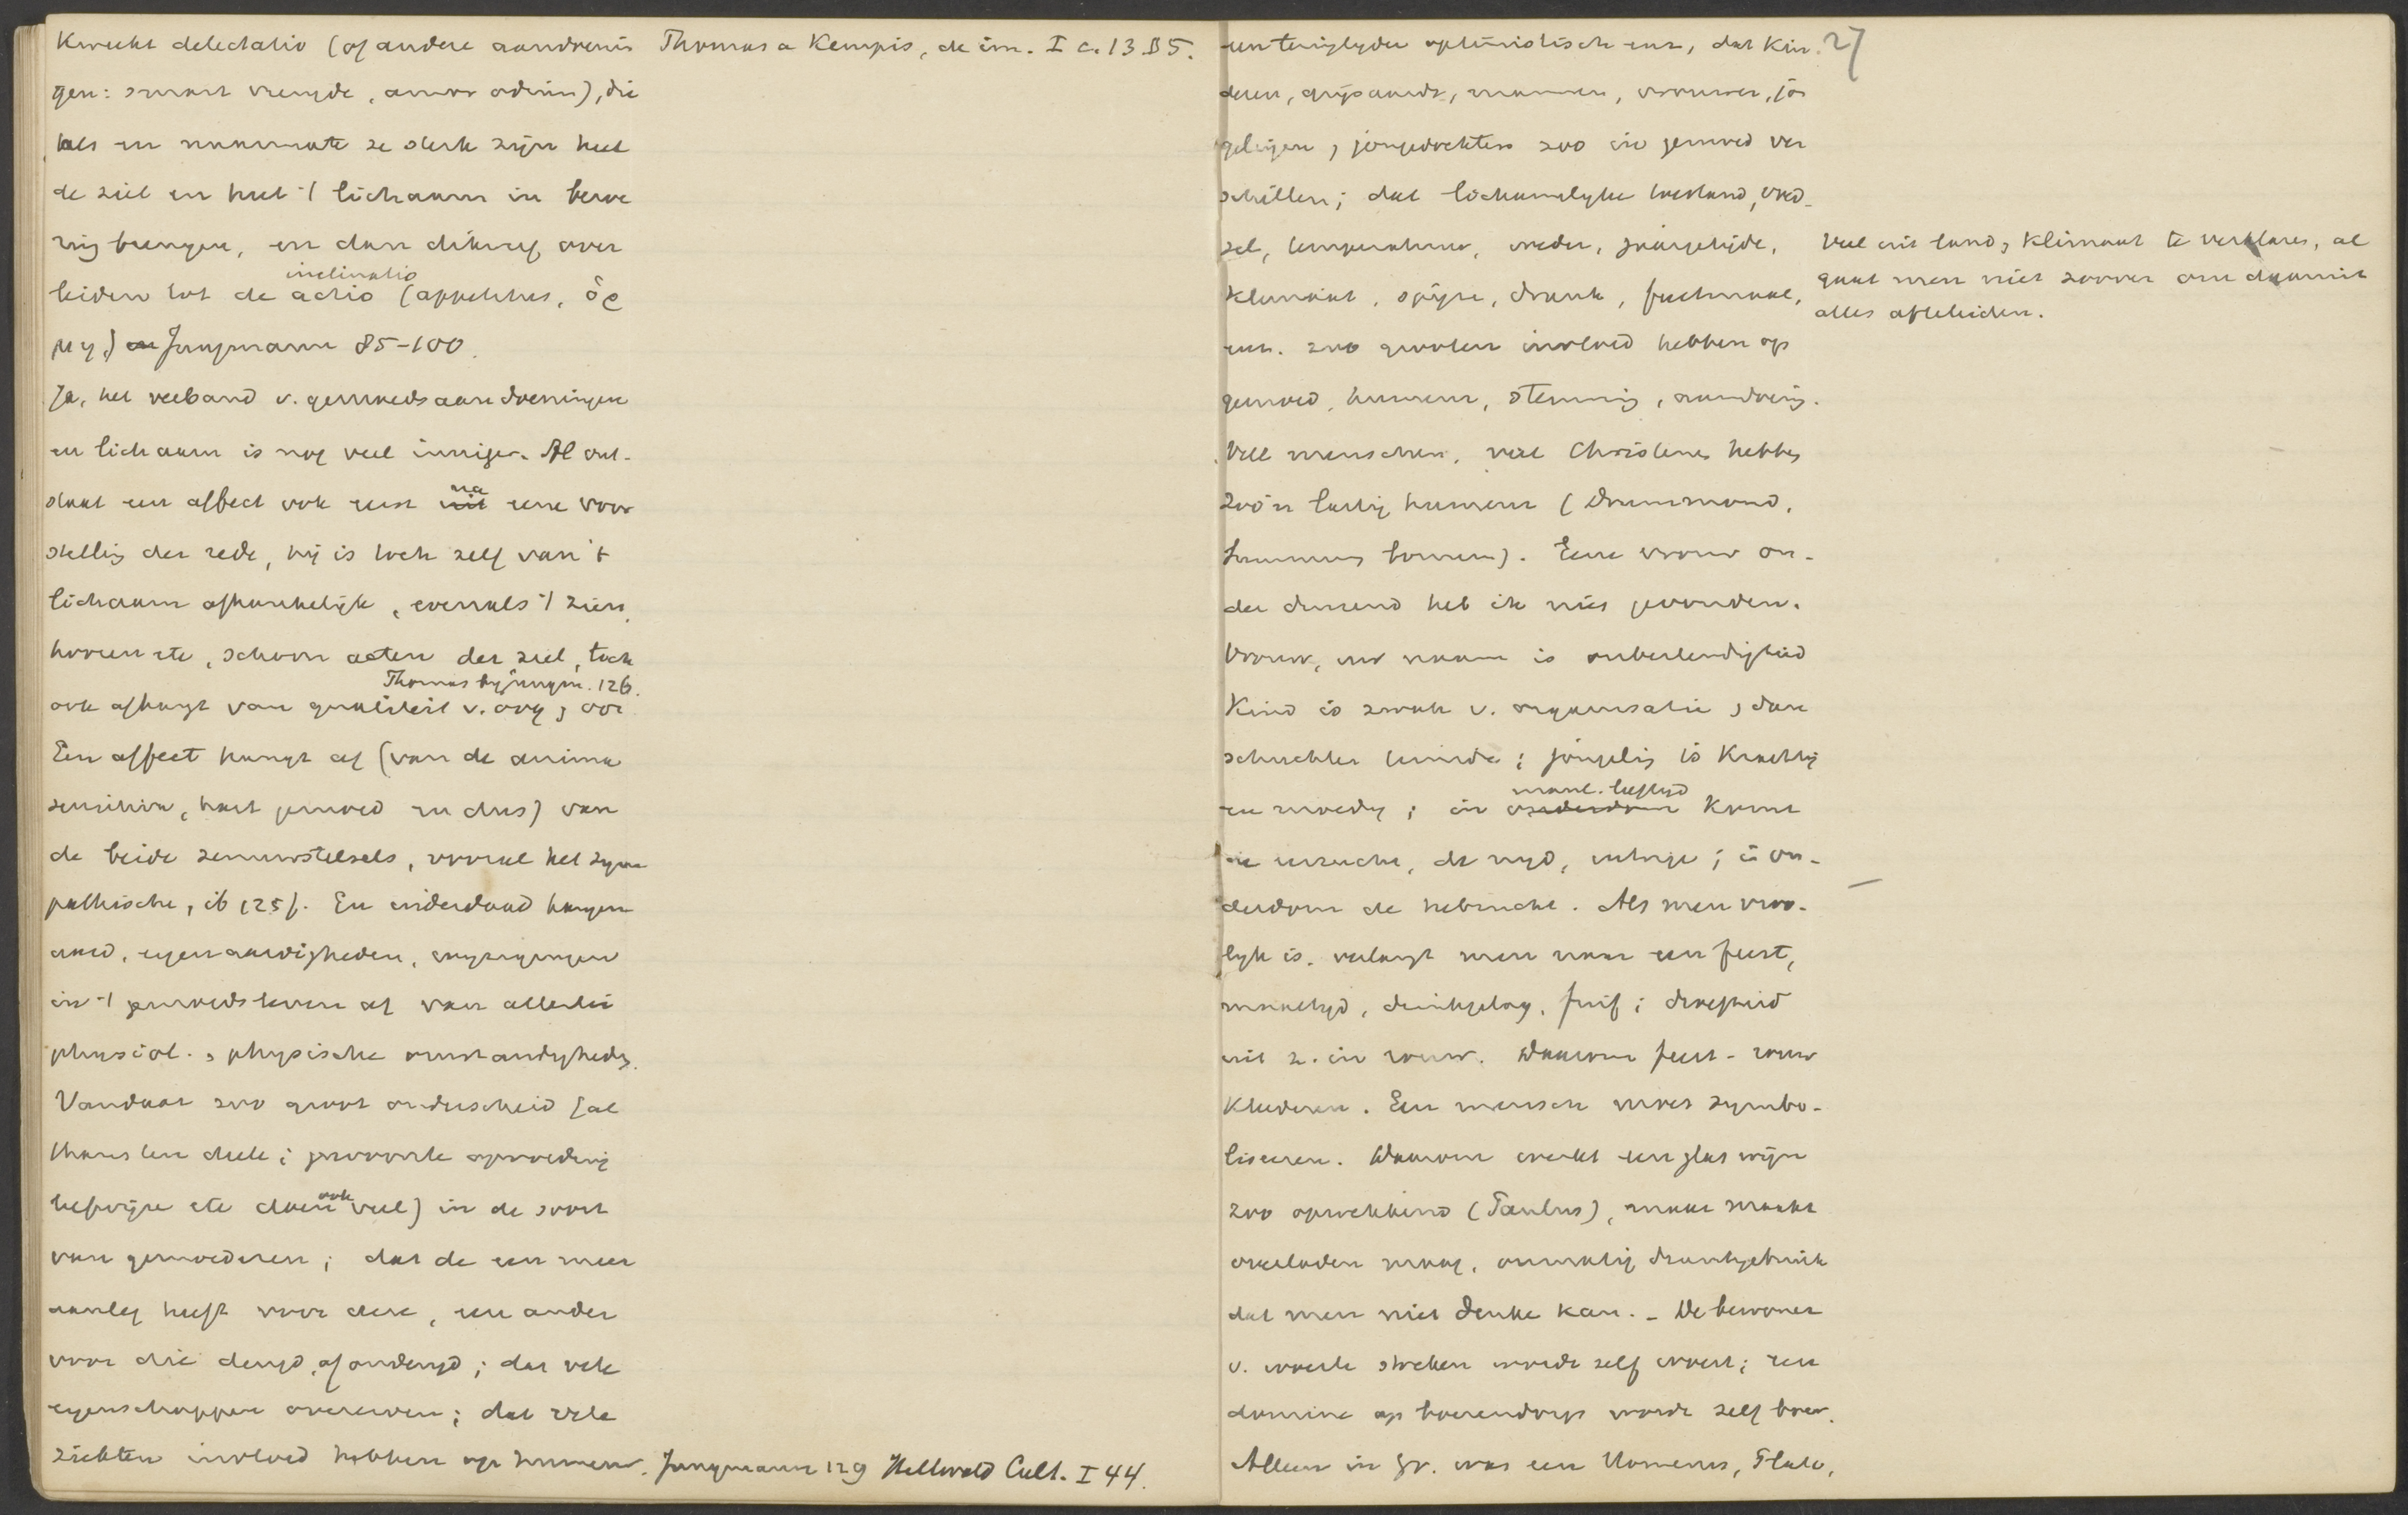 kweekt delectatio (of andere aandoenin
gen: smart vreugde, amor odium), die
als zij in ruime mate sterk zijn heel
de ziel en heel 't lichaam in bewe
ging brengen, en dan dikwijls over
leiden tot de actio (appetitus, ὁρ
inclinatio
μη) Jungmann 85-100.
Thomas a Kempis, de im. I c. 13 § 5.
Ja, het verband v. gemoedsaandoeningen
en lichaam is nog veel inniger. Al ont-
staat een affect ook eerst na eene voor
stelling der rede, hij is toch zelf van 't
lichaam afhankelijk, evenals 't zien,
hooren etc, schoon acten der ziel, toch
Thomas bij Jungm. 126.
ook afhangt van qualiteit v. oog, oor
Een affect hangt af (van de anima
sensitiva, hart gemoed en dus) van
de beide zenuwstelsels, vooral het sym
pathische, ib 125f. En inderdaad hangen
aard, eigenaardigheden, 
in 't gemoedsleven af van allerlei
physiol. , physische omstandigheden.
Vandaar zoo groot onderscheid (al
thans ten deele; gewoonte opvoeding
bespijze etc doen ook veel) in de soort
van gemoederen; dat de een meer
aanleg heeft voor deze, een ander
voor die deugd, of ondeugd; dat vele
eigenschappen overerven; dat vele
ziekten invloed hebben op humeur. Jungmann 129 Hellwald Cult. I 44.
27
een teringlyder optimistisch enz, dat kin
deren, grijsaards, mannen, vrouwen, jon
gelingen, jongedochters zoo in gemoed ver
schillen; dat lichamelyke toestand, voed-
sel, temperatuur, weder, jaargetijde,
klimaat, spijze, drank, feestmaal,
enz. zoo grooten invloed hebben op
gemoed, humeur, stemming, aandoening.
Veel uit land, klimaat te verklaren, al
gaat men niet zoover om daaruit
alles afteleiden.
Veel menschen, veel Christenen hebben
zoo'n lastig humeur (Drummond,
Summum bonum). Eene vrouw on-
der duizend heb ik niet gevonden.
Vrouw, uw naam is onbestendigheid
Kind is zwak v. organisatie, dan
schuchter ; jongeling is krachtig
en moedig; in mann. leeftijd komt
de eerzucht, de nijd, ; in ou-
derdom de hebzucht. Als men vroo-
lyk is, verlangt men naar een feest,
maaltyd, drinkgelag, fuif; droefheid
uit z. in rouw. Waarom feest- rouw
kleederen. Een mensch moet symbo-
liseeren. Waarom werkt een glas wijn
zoo opwekkend (Paulus), maar maakt
overladen maag, onmatig drankgebruik
dat men niet denke kan. - De bewoner
v. woeste streken wordt zelf woest; een
dominé op boerendorp wordt zelf boer.
Alleen in Gr. was een Homerus, Plato,